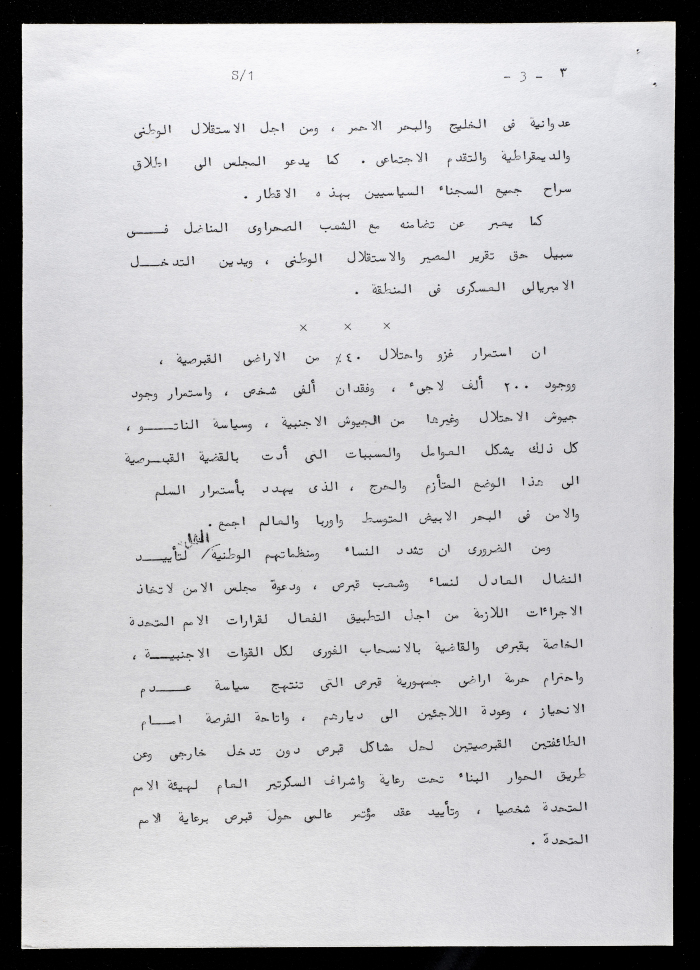 S/1
٣ - 3 -
عدوانية فى الخليج والبحر الاحمر ، ومن اجل الاستقلال الوطنى
والديمقراطية والتقدم الاجتماعى . كما يدعو المجلس الى اطلاق
سراح جميع السجناء السياسيين بهذه الاقطار .
كما يعبر عن تضامنه مع الشعب الصحراوى المناضل فـــى
سبيل حق تقرير المصير والاستقلال الوطنى ، ويدين التدخـــل
الامبريالى العسكرى فى المنطقة .
× × ×
ان استمرار غزو واحتلال ٤٠٪ من الاراضى القبرصية ،
ووجود ٢٠٠ ألف لاجىء ، وفقدان ألفى شخص ، واستمرار وجود
جيوش الاحتلال وغيرها من الجيوش الاجنبية ، وسياسة الناتـــو ،
كل ذلك يشكل العوامل والمسببات التى أدت بالقضية القبـرصية
الى هذا الوضع المتأزم والحرج ، الذى يهدد بأستمرار السلم
والامن فى البحر الابيض المتوسط واوربا والعالم اجمع .
ومن الضرورى ان تشدد النساء ومنظماتهم الوطنية لتأييـــد
النضال العادل لنساء وشعب قبرص ، ودعوة مجلس الامن لاتخاذ
الاجراءات اللازمة من اجل التطبيق الفعال لقرارات الامم المتحدة
الخاصة بقبرص والقاضية بالانسحاب الفورى لكل القوات الاجنبيــة ،
واحترام حرمة اراضى جمهورية قبرص التى تنتهج سياسة عـــدم
الانحياز ، وعودة اللاجئين الى ديارهم ، واتاحة الفرصة امــام
الطائفتين القبرصيتين لحل مشاكل قبرص دون تدخل خارجى وعن
طريق الحوار البناء تحت رعاية واشراف السكرتير العام لهيئة الامم
المتحدة شخصيا ، وتأييد عقد مؤتمر عالمى حول قبرص برعاية الامم
المتحدة .